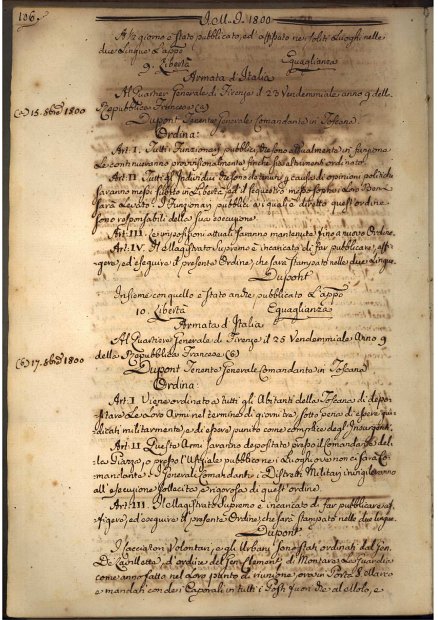 106.
A.M.D. 1800
A 12 giorno è stato pubblicato, ed affisso ne soliti Luoghi nelle
due Lingue L'appo
9. Libertà Eguaglianza
Armata d'Italia
Al Quartier Generale di Firenze il 23 Vendemmiale anno 9 della
(a) 15. 8bre 1800
Repubblica Francese (a)
Dupont Tenente Generale Comandante in Toscana
Ordina:
Art: I. Tutti i Funzionarj pubblici, che sono attualmente in funzione
le continueranno provvisionalmente finchè sia altrimenti ordinato.
Art: II. Tutti gl'Individui che sono detenuti per causa di opinioni politiche
saranno messi subito in Libertà, ed il sequestro messo sopra i loro Beni
sarà levato. I Funzionarj pubblici, a i quali è diretto quest'ordine
sono responsabili della sua esecuzione.
Art: III. Le imposizioni attuali saranno mantenute fino a nuovo Ordine.
Art: IV. Il Magistrato Supremo è incaricato di far pubblicare, affi-
gere, ed eseguire il presente Ordine, che sarà stampato nelle due Lingue.
Dupont
Insieme con quello è stato anche pubblicato L'appo
10. Libertà Eguaglianza
Armata d'Italia
Al Quartiere Generale di Firenze il 25 Vendemmiale Anno 9
(b) 17. 8bre 1800
della Repubblica Francese (b)
Dupont Tenente Generale Comandante in Toscana
Ordina:
Art: I. Viene ordinato a tutti gli Abitanti della Toscana di depo-
sitare le loro Armi nel termine di giorni tre, sotto pena di essere giu-
dicati militarmente, e di essere puniti come complici degl'Insorgenti.
Art: II. Queste Armi saranno depositate presso il Comandante del-
la Piazza, o presso l'Uffiziale pubblico ne i Luoghi ove non ci sarà Co-
mandante. I Generali Comandanti i Distretti Militari invigileranno
all'esecuzione sollecita, e rigorosa di quest'ordine.
Art: III. Il Magistrato Supremo è incaricato di far pubblicare, af-
figere, ed eseguire il presente Ordine, che sarà stampato nelle due lingue.
Dupont
I Cacciatori Volontarj, e gli Urbani sono stati ordinati dal Gen.
d'ordine del Gen: Clement di montare le Guardie
come anno fatto nel loro punto di riunione, ora in Porto S. Marco
e mandati con dei Caporali in tutti i Posti fuori che al Molo, e